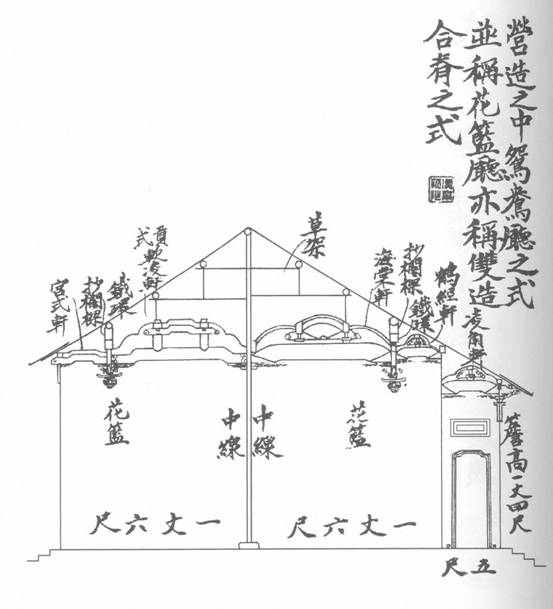 營造之中鴛鴦廳之式
並稱花籃廳亦稱雙造
合脊之式
草架
海棠軒
鐵環
鶴經軒
凌角軒
鐵環
宮式軒
花籃
中線
中線
花籃
簷高一丈四尺
一丈六尺
一丈六尺
五尺